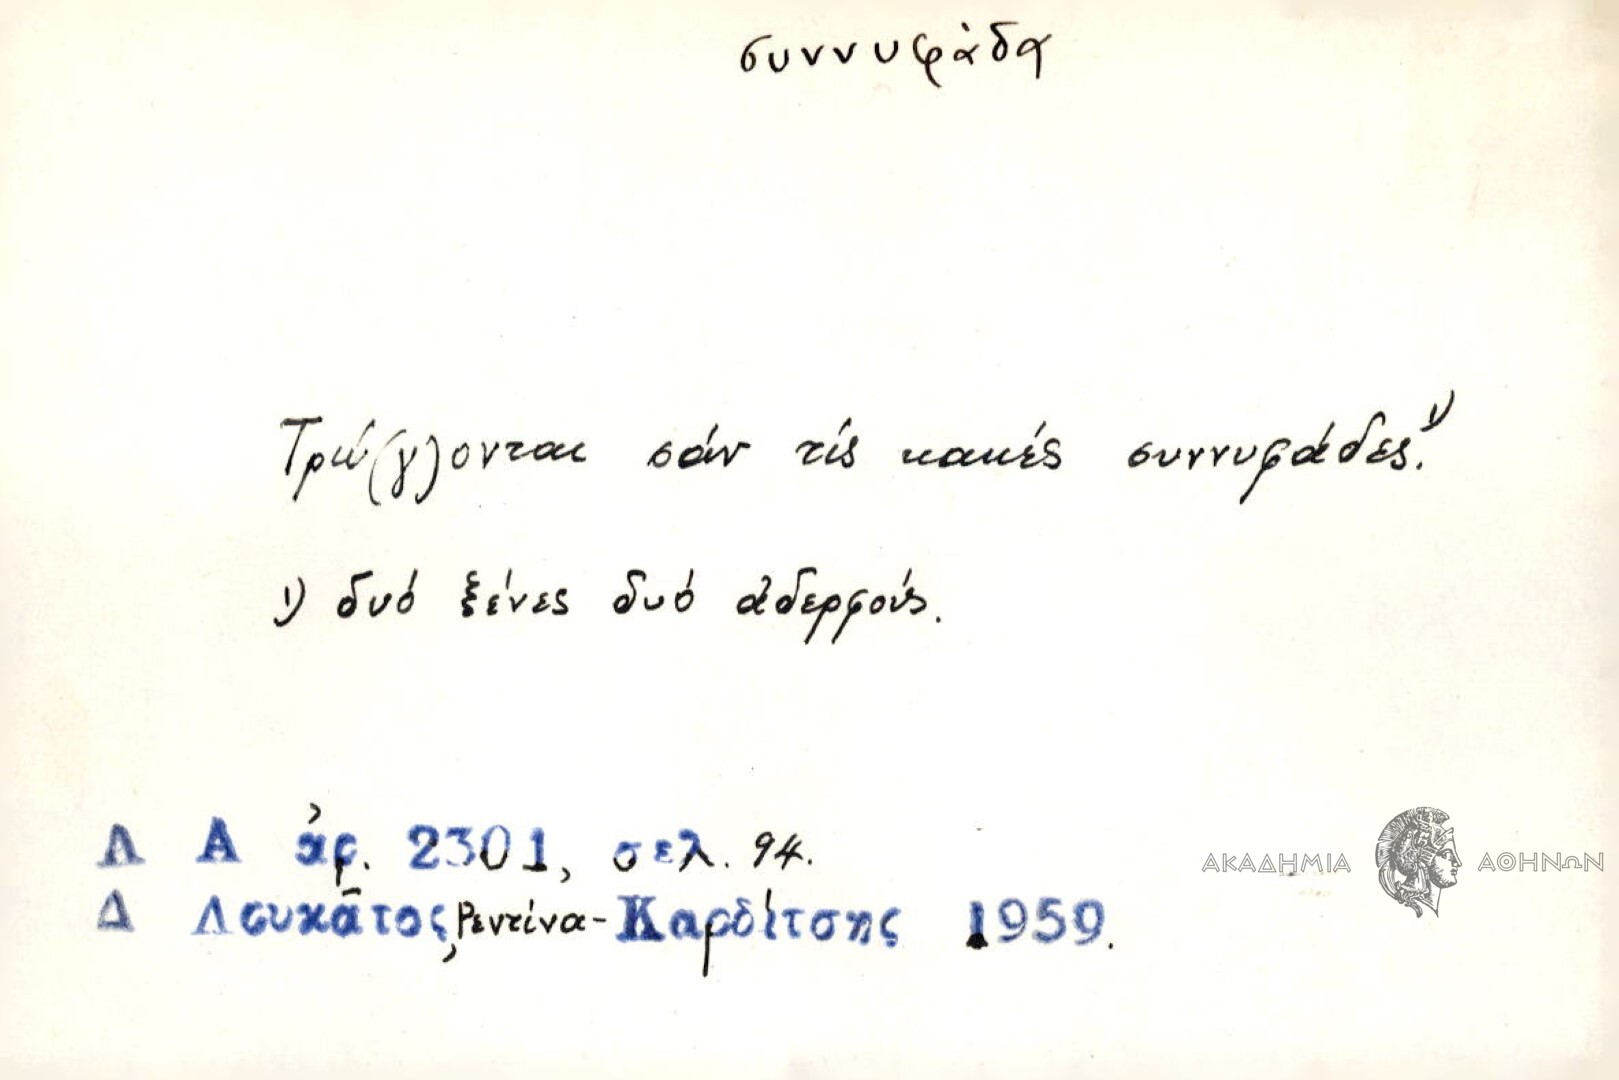 συννυφάδα
Τρώ(γ)ονται σάν τίς κακές συννυφάδες.¹⁾
¹⁾ δυό ξένες δυό ἀδερφούς.
Λ Α ἀρ. 2301, σελ. 94.
Δ Λουκᾶτος, Ρεντίνα - Καρδίτσης 1959.
ΑΚΑΔΗΜΙΑ ΑΘΗΝΩΝ